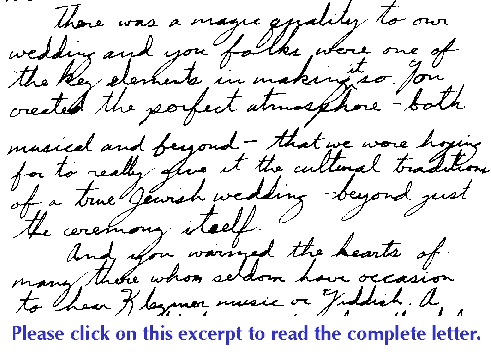 There was a magic quality to our
wedding and you folks were one of
the key elements in making it so. You
created the perfect atmosphere - both
musical and beyond - that we were hoping
for to really give it the cultural traditions
of a true Jewish wedding - beyond just
the ceremony itself.
And you warmed the hearts of
many there whom seldom have occasion
to hear Klezmer music or Yiddish. A
Please click on this excerpt to read the complete letter.